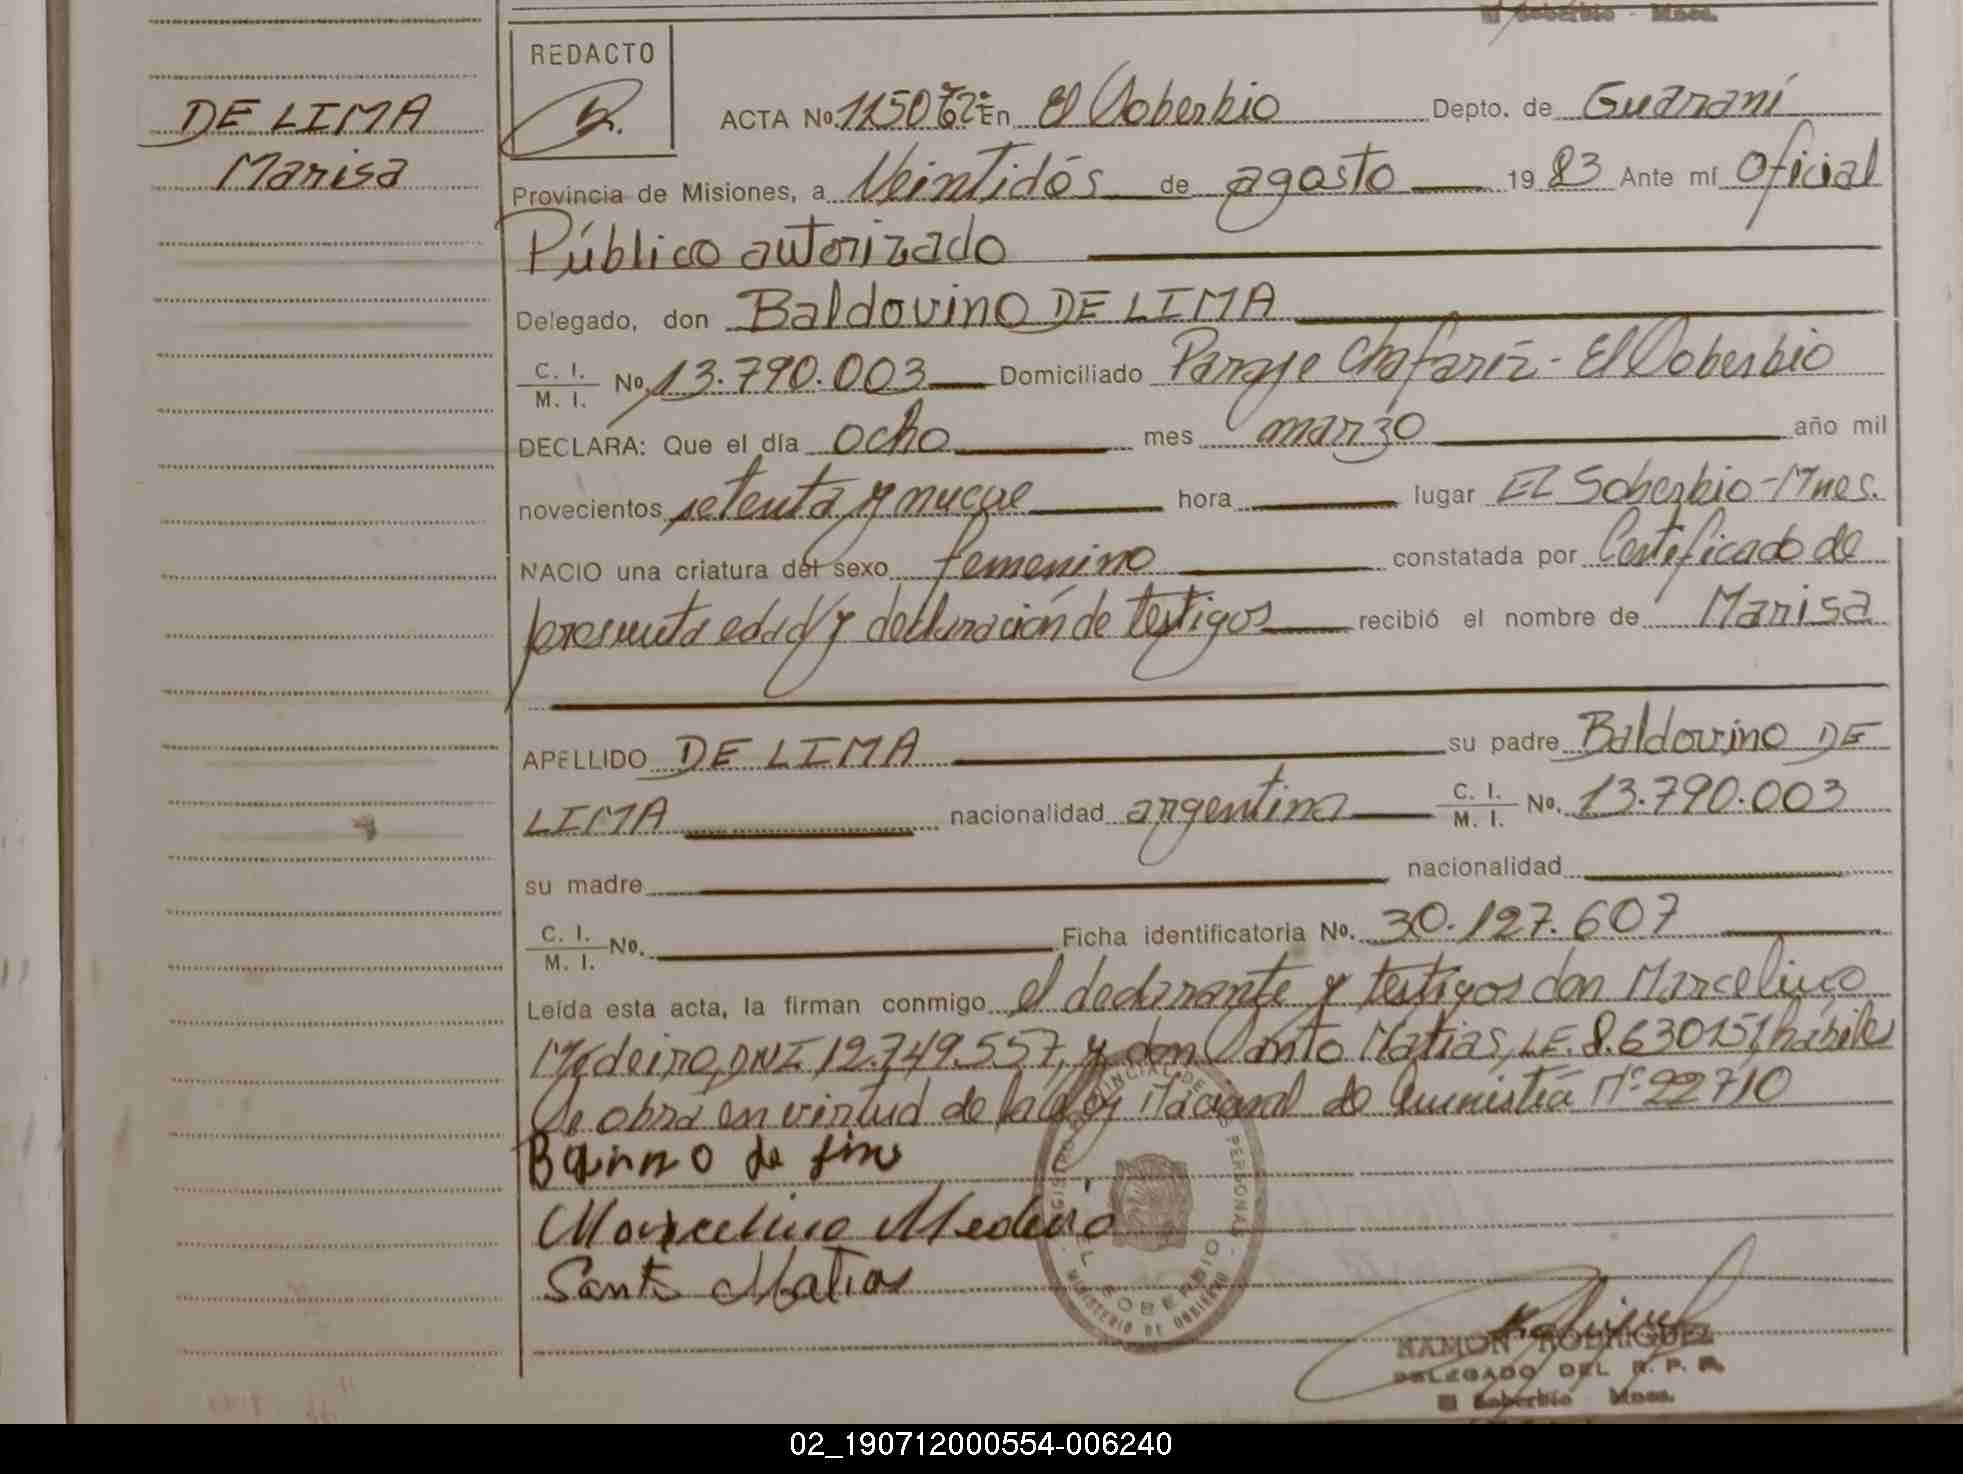 El Soberbio - Mnes.
REDACTO
DE LIMA
Marisa
ACTA No. En El Soberbio Depto. de Guaraní
Provincia de Misiones, a Veintidós de agosto 19 83 Ante mí Oficial
Público autorizado
Delegado, don Baldovino DE LIMA
C. I.
M. I. No. 13.790.003 Domiciliado Paraje Chafaríz - El Soberbio
DECLARA: Que el día ocho mes marzo año mil
novecientos setenta y nueve hora lugar El Soberbio - Mnes.
NACIO una criatura del sexo femenino constatada por Certificado de
presunta edad y declaración de testigos recibió el nombre de Marisa
APELLIDO DE LIMA su padre Baldovino DE
LIMA nacionalidad argentina C. I.
M. I. No. 13.790.003
su madre nacionalidad
C. I.
M. I. No. Ficha identificatoria No. 30.127.607
Leída esta acta, la firman conmigo el declarante y testigos don Marcelino
Medeiro, DNI 12.749.557, y don Santo Matias, LE. 8.630151, hábiles
Se obra en virtud de la Ley Nacional de Amnistía Nº 22710
Marcelino Medeiro
Santo Matias
REGISTRO PROVINCIAL DE LAS PERSONAS
EL SOBERBIO
MINISTERIO DE GOBIERNO
RAMON RODRIGUEZ
DELEGADO DEL R. P. P.
El Soberbio Mnes.
02_190712000554-006240